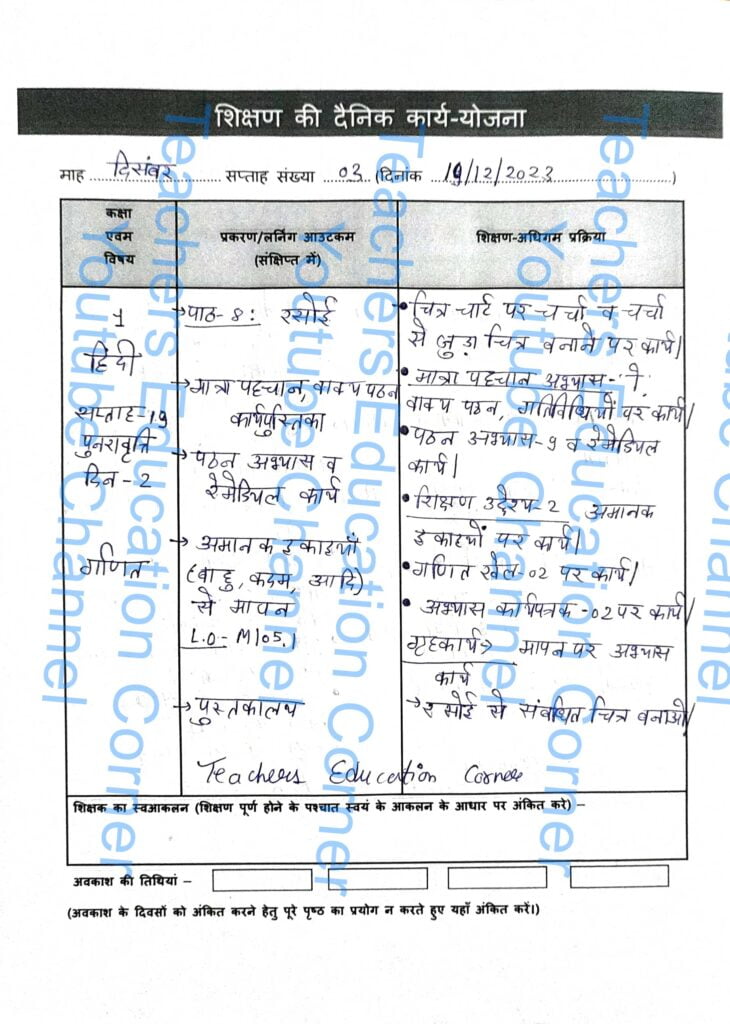 शिक्षण की दैनिक कार्य-योजना
माह दिसंबर सप्ताह संख्या 03 (दिनांक 19/12/2023)
कक्षा
एवम
विषय
प्रकरण/लर्निंग आउटकम
(संक्षिप्त में)
शिक्षण-अधिगम प्रक्रिया
1
हिंदी
सप्ताह-19
पुनरावृत्ति
दिन-2
गणित
→पाठ-8: रसोई
→मात्रा पहचान, वाक्य पठन
कार्यपुस्तिका
→पठन अभ्यास व
रेमेडियल कार्य
→ अमानक इकाइयों
(बाहु, कदम, आदि)
से मापन
L.O- M105.1
→पुस्तकालय
• चित्र चार्ट पर चर्चा व चर्चा
से जुड़ा चित्र बनाने पर कार्य।
• मात्रा पहचान अभ्यास-
वाक्य पठन, गतिविधियों पर कार्य।
• पठन अभ्यास-9 व रेमेडियल
कार्य।
• शिक्षण उद्देश्य-2 अमानक
इकाइयों पर कार्य।
• गणित खेल-02 पर कार्य।
• अभ्यास कार्यपत्रक-02 पर कार्य।
गृहकार्य→ मापन पर अभ्यास
कार्य
→रसोई से संबंधित चित्र बनाओ।
Teachers Education Corner
शिक्षक का स्वआकलन (शिक्षण पूर्ण होने के पश्चात स्वयं के आकलन के आधार पर अंकित करे) –
अवकाश की तिथियां –
(अवकाश के दिवसों को अंकित करने हेतु पूरे पृष्ठ का प्रयोग न करते हुए यहाँ अंकित करें।)
Teachers Education Corner
Youtube Channel
Teachers Education Corner
Youtube Channel
Teachers Education Corner
Youtube Channel